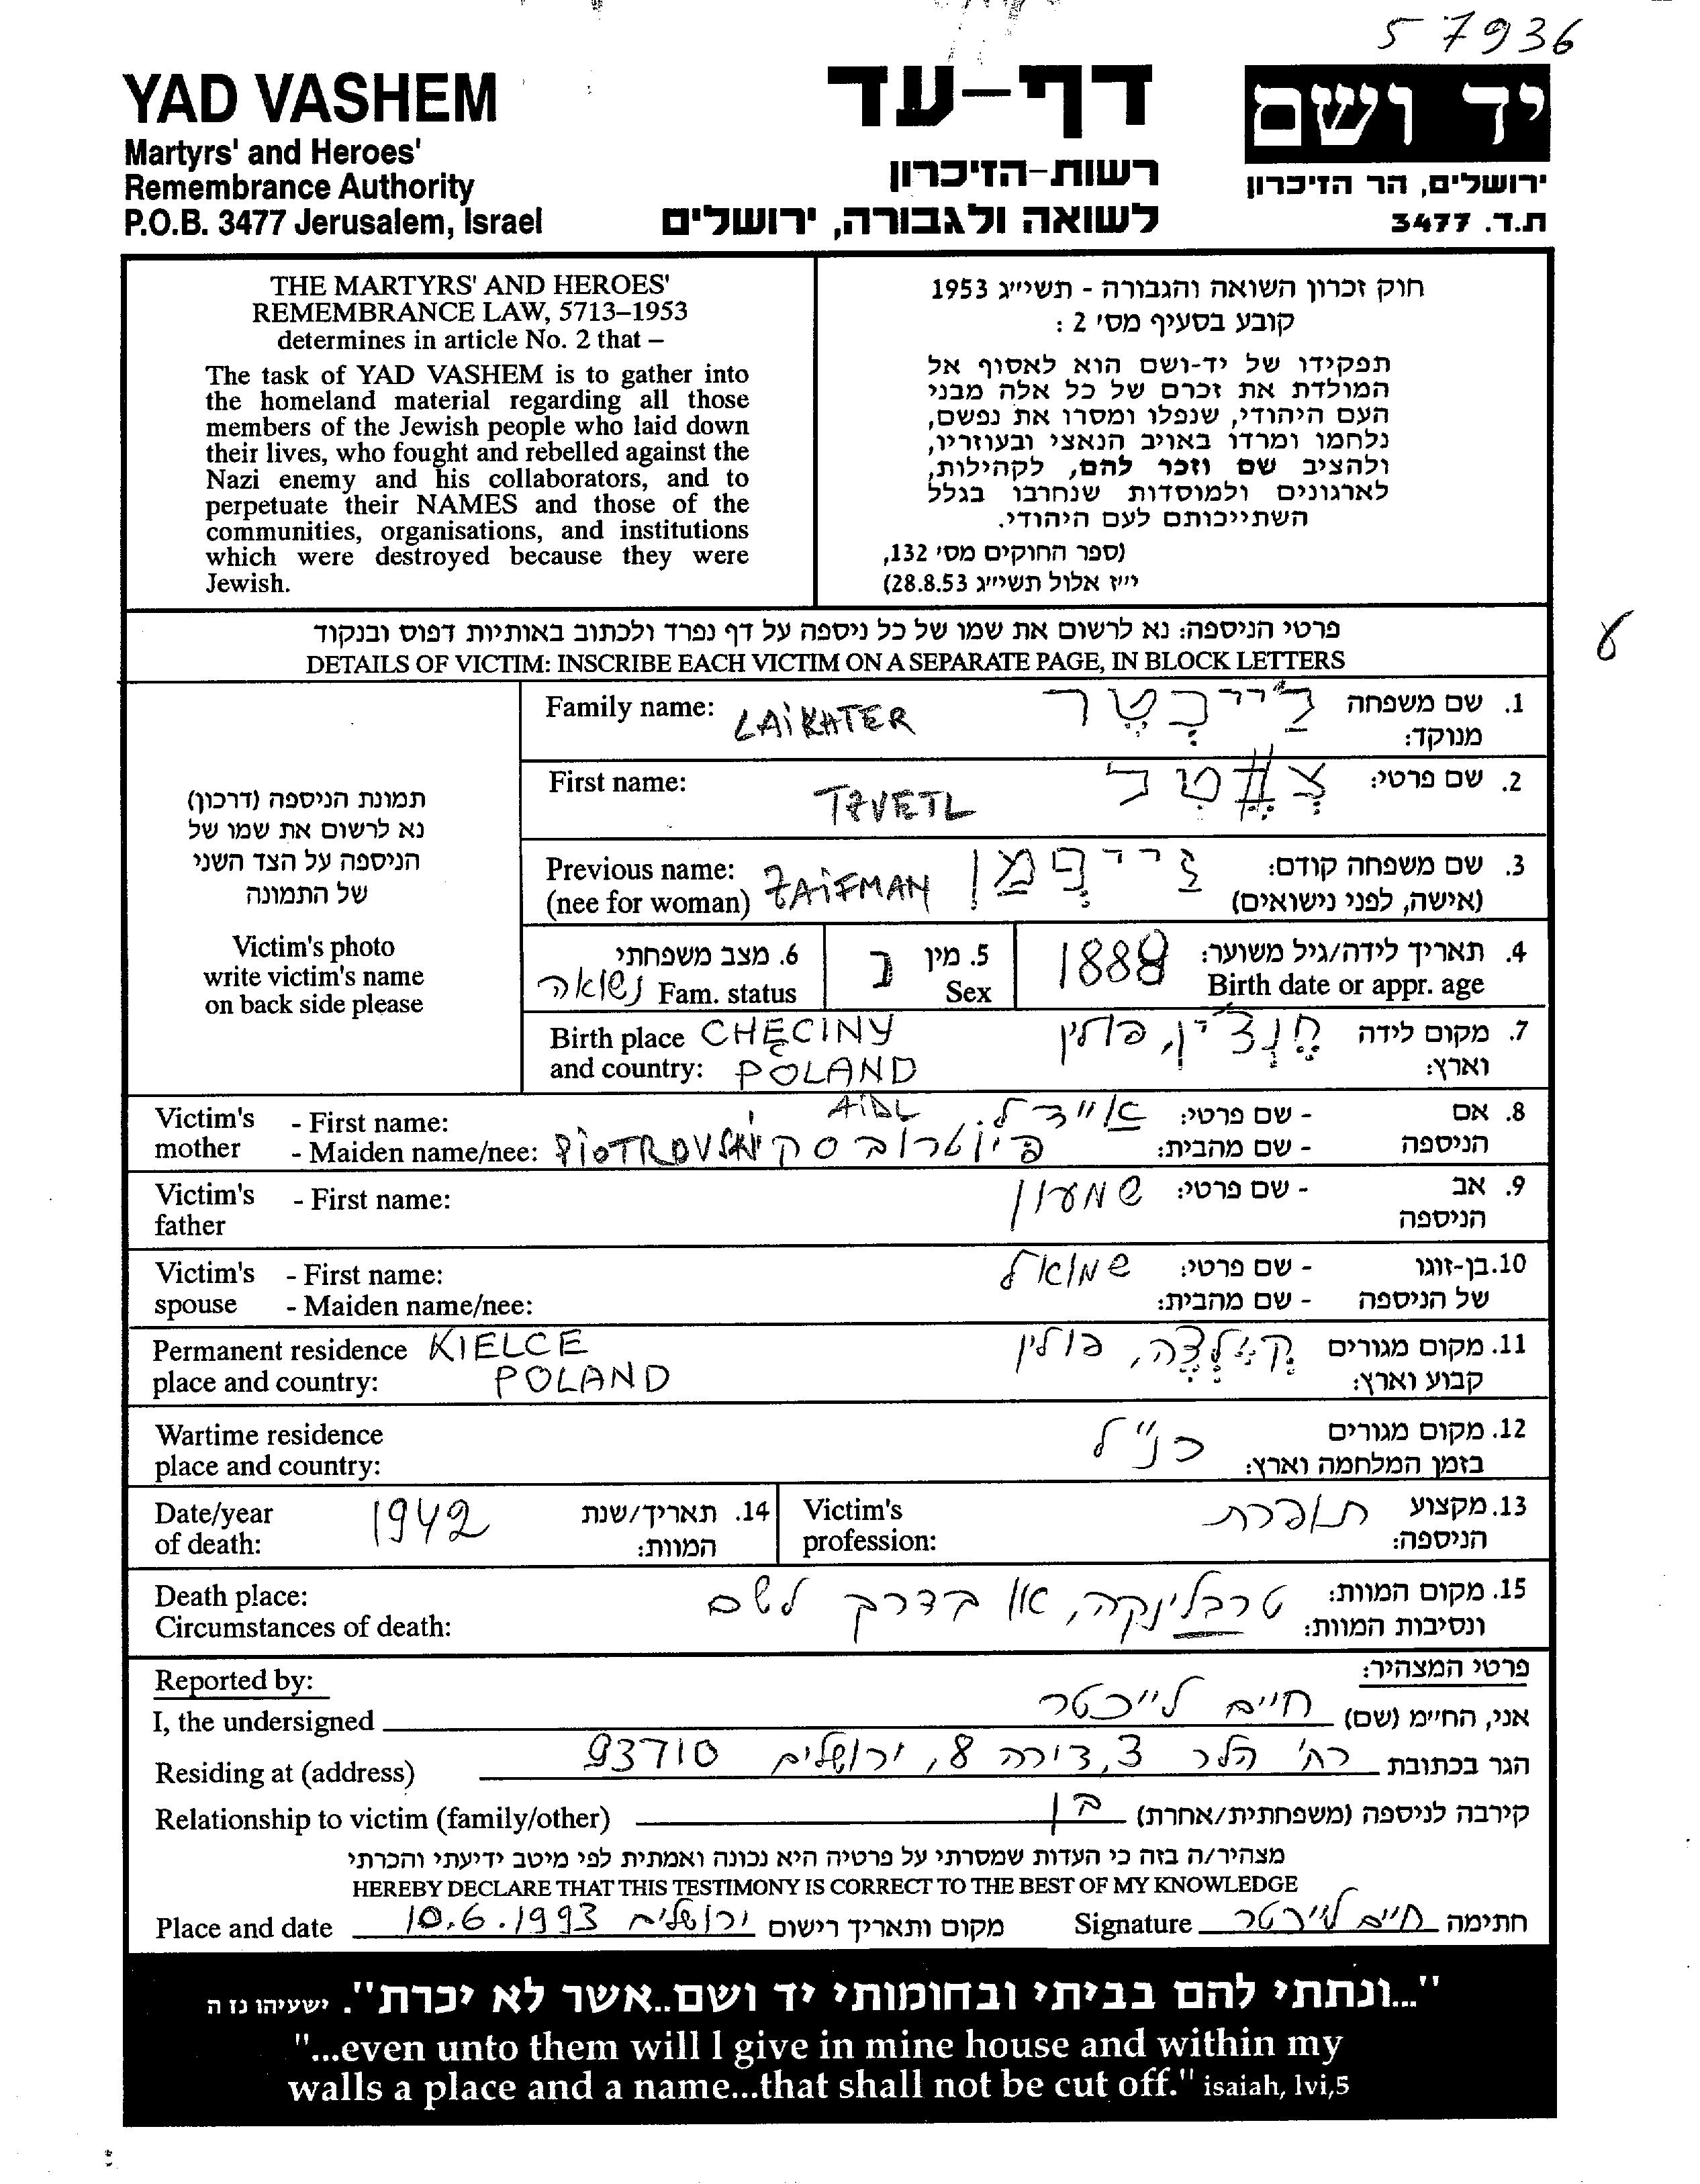 57936
YAD VASHEM
Martyrs' and Heroes'
Remembrance Authority
P.O.B. 3477 Jerusalem, Israel
דף-עד
רשות-הזיכרון
לשואה ולגבורה, ירושלים
יד ושם
ירושלים, הר הזיכרון
ת.ד. 3477
THE MARTYRS' AND HEROES'
REMEMBRANCE LAW, 5713–1953
determines in article No. 2 that –
The task of YAD VASHEM is to gather into
the homeland material regarding all those
members of the Jewish people who laid down
their lives, who fought and rebelled against the
Nazi enemy and his collaborators, and to
perpetuate their NAMES and those of the
communities, organisations, and institutions
which were destroyed because they were
Jewish.
חוק זכרון השואה והגבורה - תשי״ג 1953
קובע בסעיף מס׳ 2 :
תפקידו של יד-ושם הוא לאסוף אל
המולדת את זכרם של כל אלה מבני
העם היהודי, שנפלו ומסרו את נפשם,
נלחמו ומרדו באויב הנאצי ובעוזריו,
ולהציב שם וזכר להם, לקהילות,
לארגונים ולמוסדות שנחרבו בגלל
השתייכותם לעם היהודי.
(ספר החוקים מס׳ 132,
י״ז אלול תשי״ג 28.8.53)
פרטי הניספה: נא לרשום את שמו של כל ניספה על דף נפרד ולכתוב באותיות דפוס ובנקוד
DETAILS OF VICTIM: INSCRIBE EACH VICTIM ON A SEPARATE PAGE, IN BLOCK LETTERS
תמונת הניספה (דרכון)
נא לרשום את שמו של
הניספה על הצד השני
של התמונה
Victim's photo
write victim's name
on back side please
1. שם משפחה לייכטר Family name: LAIKHTER
מנוקד:
2. שם פרטי: First name: TZVETL
3. שם משפחה קודם: זייפמן Previous name: ZAIFMAN
(אישה, לפני נישואים) (nee for woman)
4. תאריך לידה/גיל משוער: 1888 5. מין נ 6. מצב משפחתי נשואה
Birth date or appr. age Sex Fam. status
7. מקום לידה חנצ׳ין, פולין Birth place CHĘCINY
וארץ: and country: POLAND
8. אם - שם פרטי: איידל AIDL Victim's - First name:
הניספה - שם מהבית: פיוטרובסקי PIOTROVSKI mother - Maiden name/nee:
9. אב - שם פרטי: שמעון Victim's - First name:
הניספה father
10. בן-זוגו - שם פרטי: שמואל Victim's - First name:
של הניספה - שם מהבית: spouse - Maiden name/nee:
11. מקום מגורים קילצה, פולין Permanent residence KIELCE
קבוע וארץ: place and country: POLAND
12. מקום מגורים כנ״ל Wartime residence
בזמן המלחמה וארץ: place and country:
13. מקצוע תופרת Victim's 14. תאריך/שנת 1942 Date/year
הניספה: profession: המוות: of death:
15. מקום המוות: טרבלינקה, או בדרך לשם Death place:
ונסיבות המוות: Circumstances of death:
פרטי המצהיר: Reported by:
אני, הח״מ (שם) חיים לייכטר I, the undersigned
הגר בכתובת רח׳ הלר 3, דירה 8, ירושלים 93710 Residing at (address)
קירבה לניספה (משפחתית/אחרת) בן Relationship to victim (family/other)
מצהיר/ה בזה כי העדות שמסרתי על פרטיה היא נכונה ואמתית לפי מיטב ידיעתי והכרתי
HEREBY DECLARE THAT THIS TESTIMONY IS CORRECT TO THE BEST OF MY KNOWLEDGE
חתימה חיים לייכטר Signature מקום ותאריך רישום ירושלים 10.6.1993 Place and date
"...ונתתי להם בביתי ובחומותי יד ושם..אשר לא יכרת". ישעיהו נז ה
"...even unto them will I give in mine house and within my
walls a place and a name...that shall not be cut off." isaiah, lvi,5